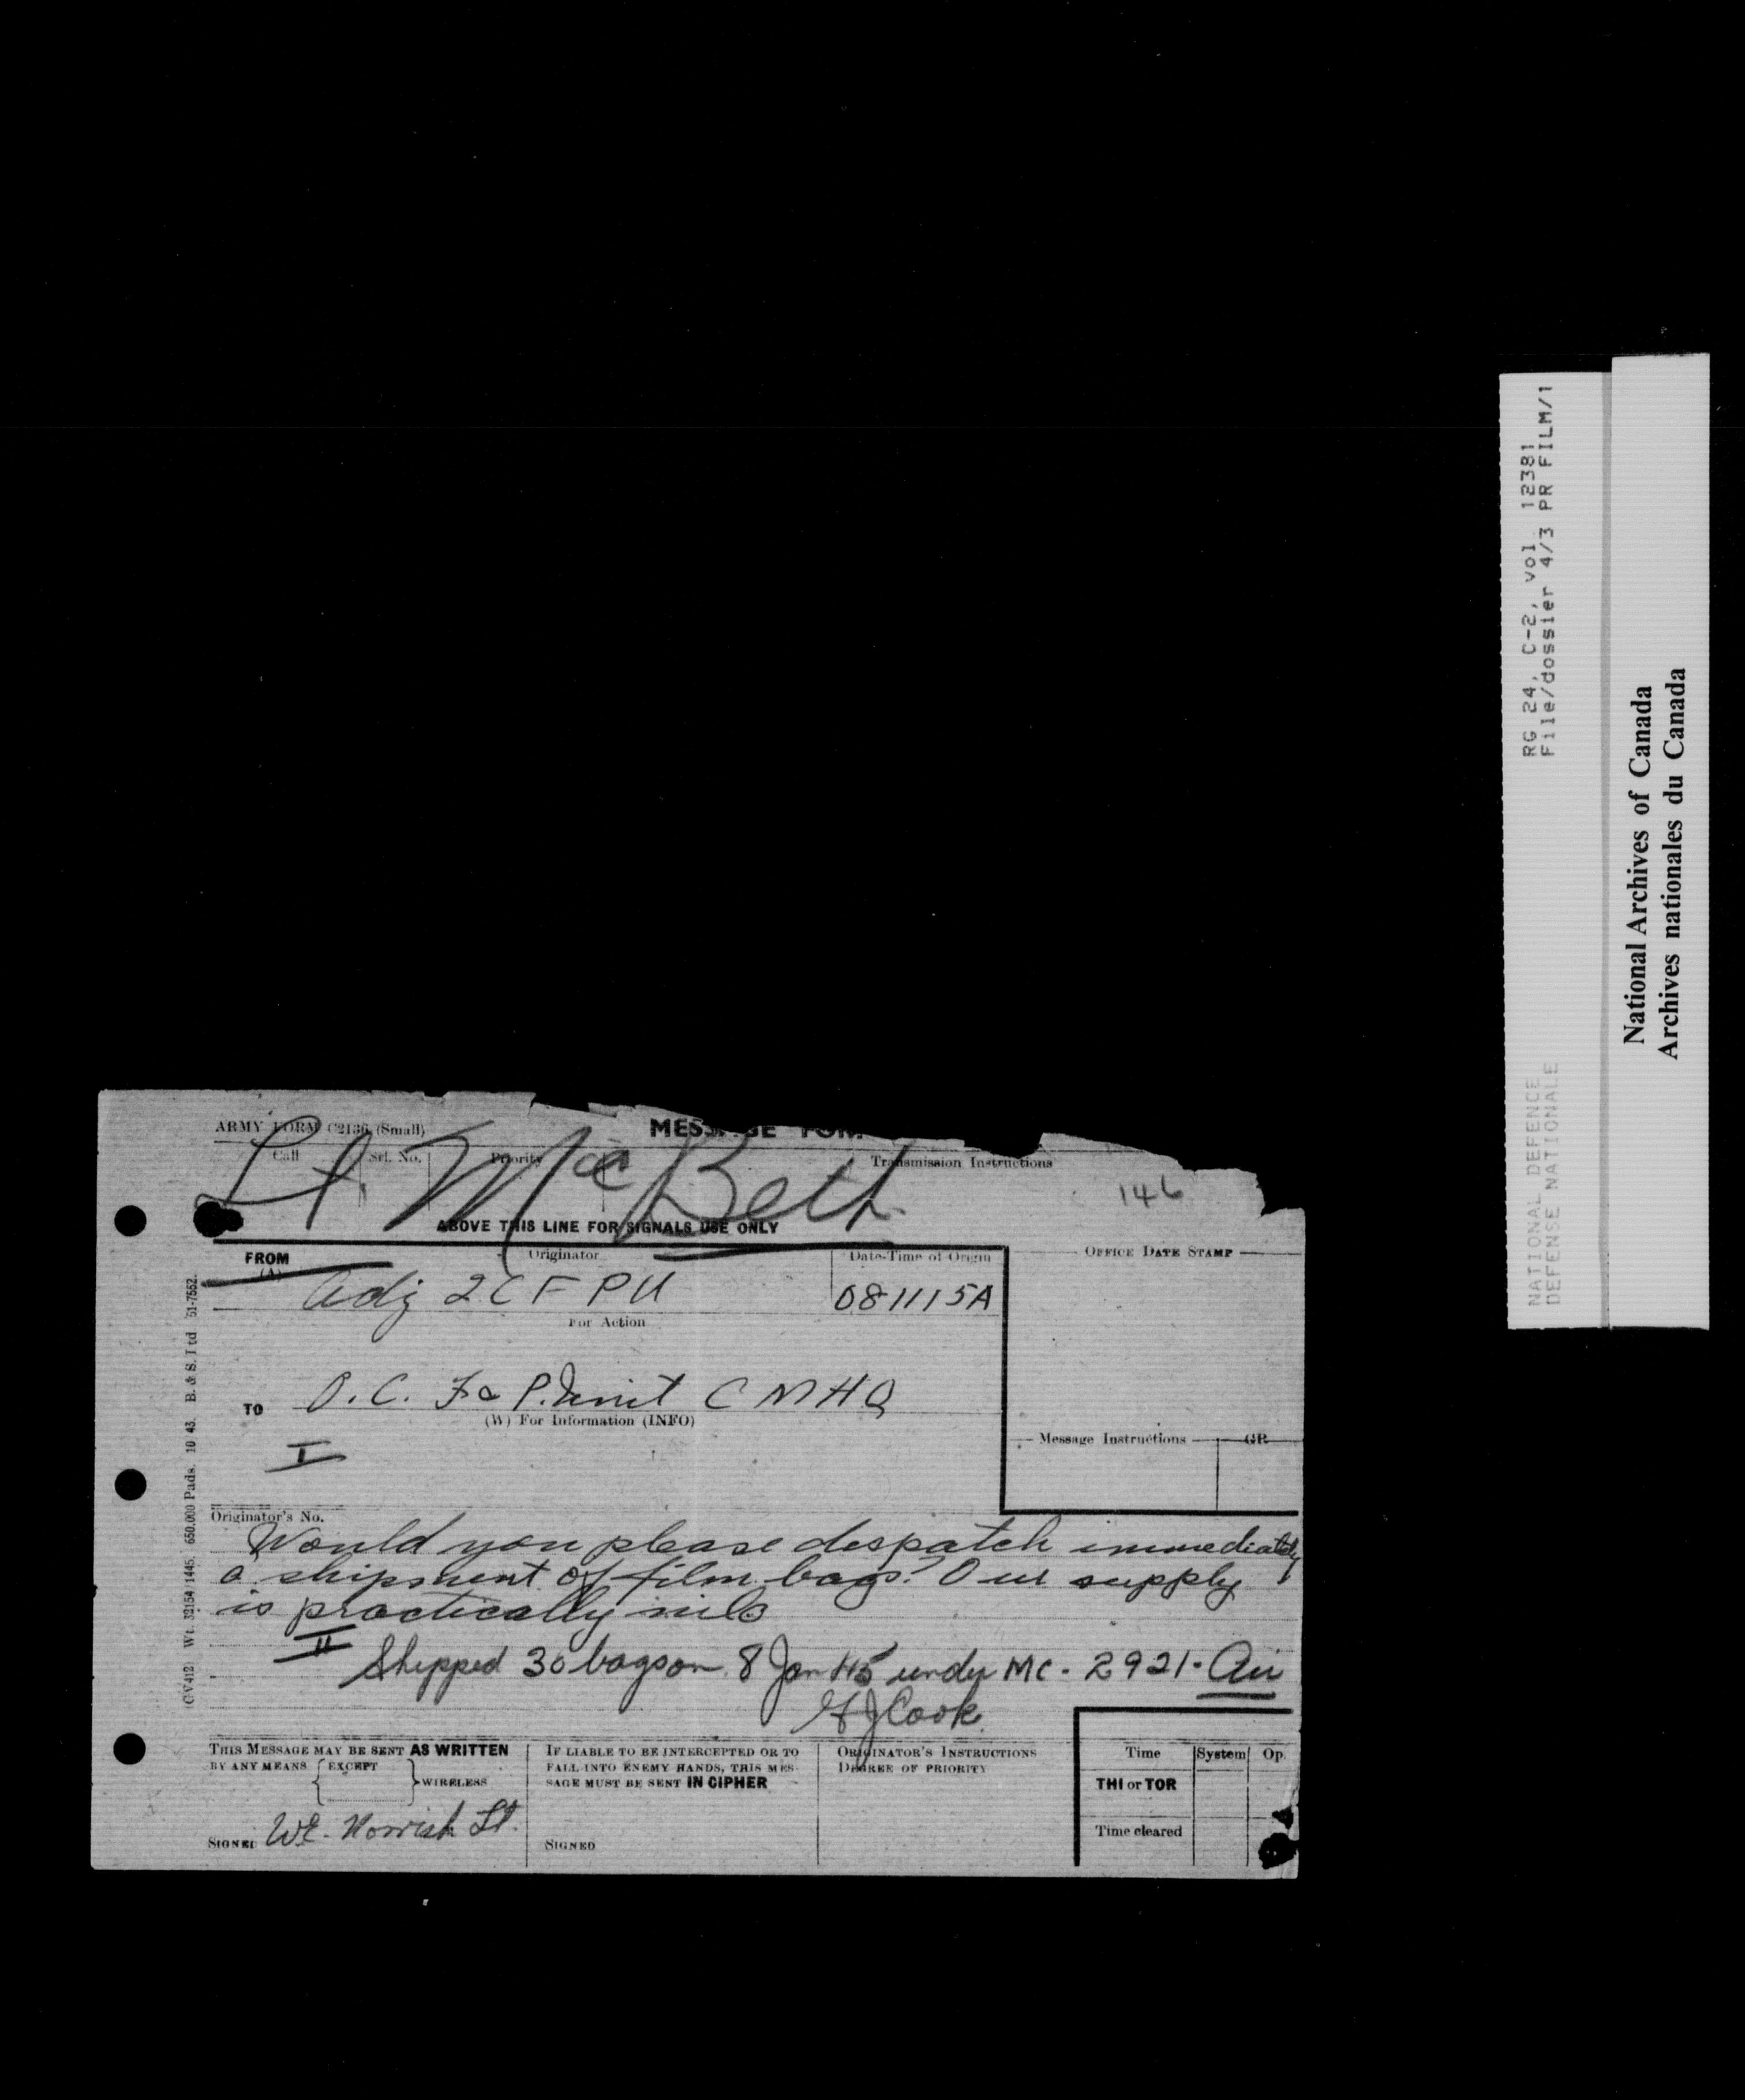 ARMY FORM C2136 (Small)
MESSAGE FORM
Lt McBeth
Call
Srl. No.
Priority
Transmission Instructions
146
ABOVE THIS LINE FOR SIGNALS USE ONLY
FROM
(A)
Originator
Date-Time of Origin
OFFICE DATE STAMP
Adj 2 C F P U
081115A
For Action
TO
O.C. F & P. Unit C M H Q
(W) For Information (INFO)
I
Message Instructions
GR
Originator's No.
Would you please despatch immediately
a shipment of film bags? Our supply
is practically nil.
II
Shipped 30 bags on 8 Jan 45 under MC - 2921 - Air
Cook
THIS MESSAGE MAY BE SENT AS WRITTEN
BY ANY MEANS EXCEPT
WIRELESS
SIGNED W.E. Norrish Lt.
IF LIABLE TO BE INTERCEPTED OR TO
FALL INTO ENEMY HANDS, THIS MES-
SAGE MUST BE SENT IN CIPHER
SIGNED
ORIGINATOR'S INSTRUCTIONS
DEGREE OF PRIORITY
Time
System
Op.
THI or TOR
Time cleared
(GV412) Wt. 32154/1445. 650,000 Pads. 10 43. B. & S. Ltd 51-7552.
RG 24, C-2, vol. 12381
File/dossier 4/3 PR FILM/1
NATIONAL DEFENCE
DEFENSE NATIONALE
National Archives of Canada
Archives nationales du Canada